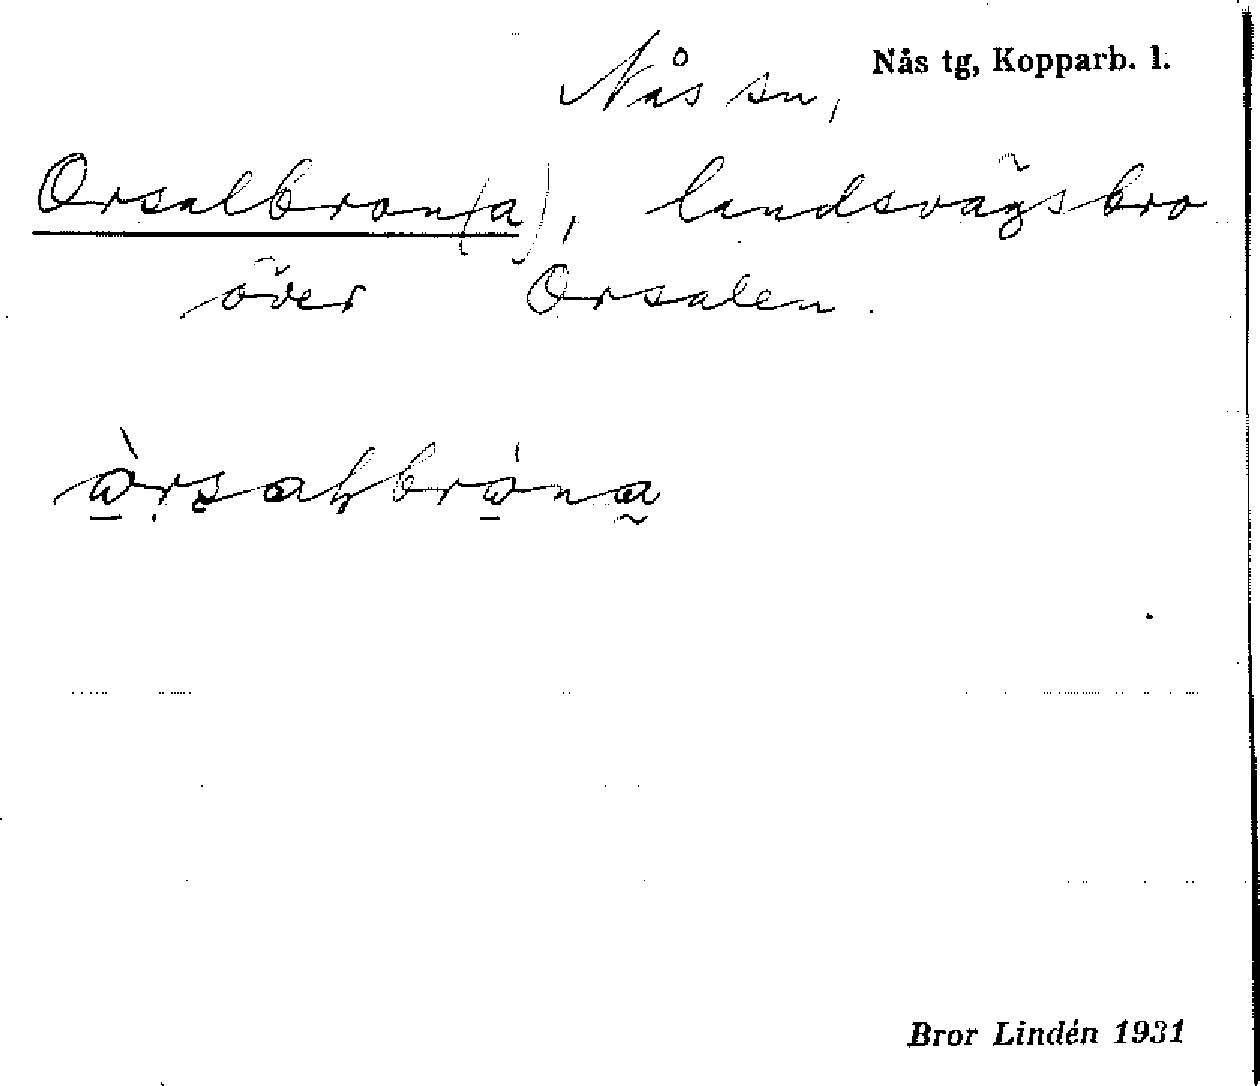 Nås tg, Kopparb. l.
Nås sn,
Orsalbron(a), landsvägsbro
över Orsalen.
Bror Lindén 1931